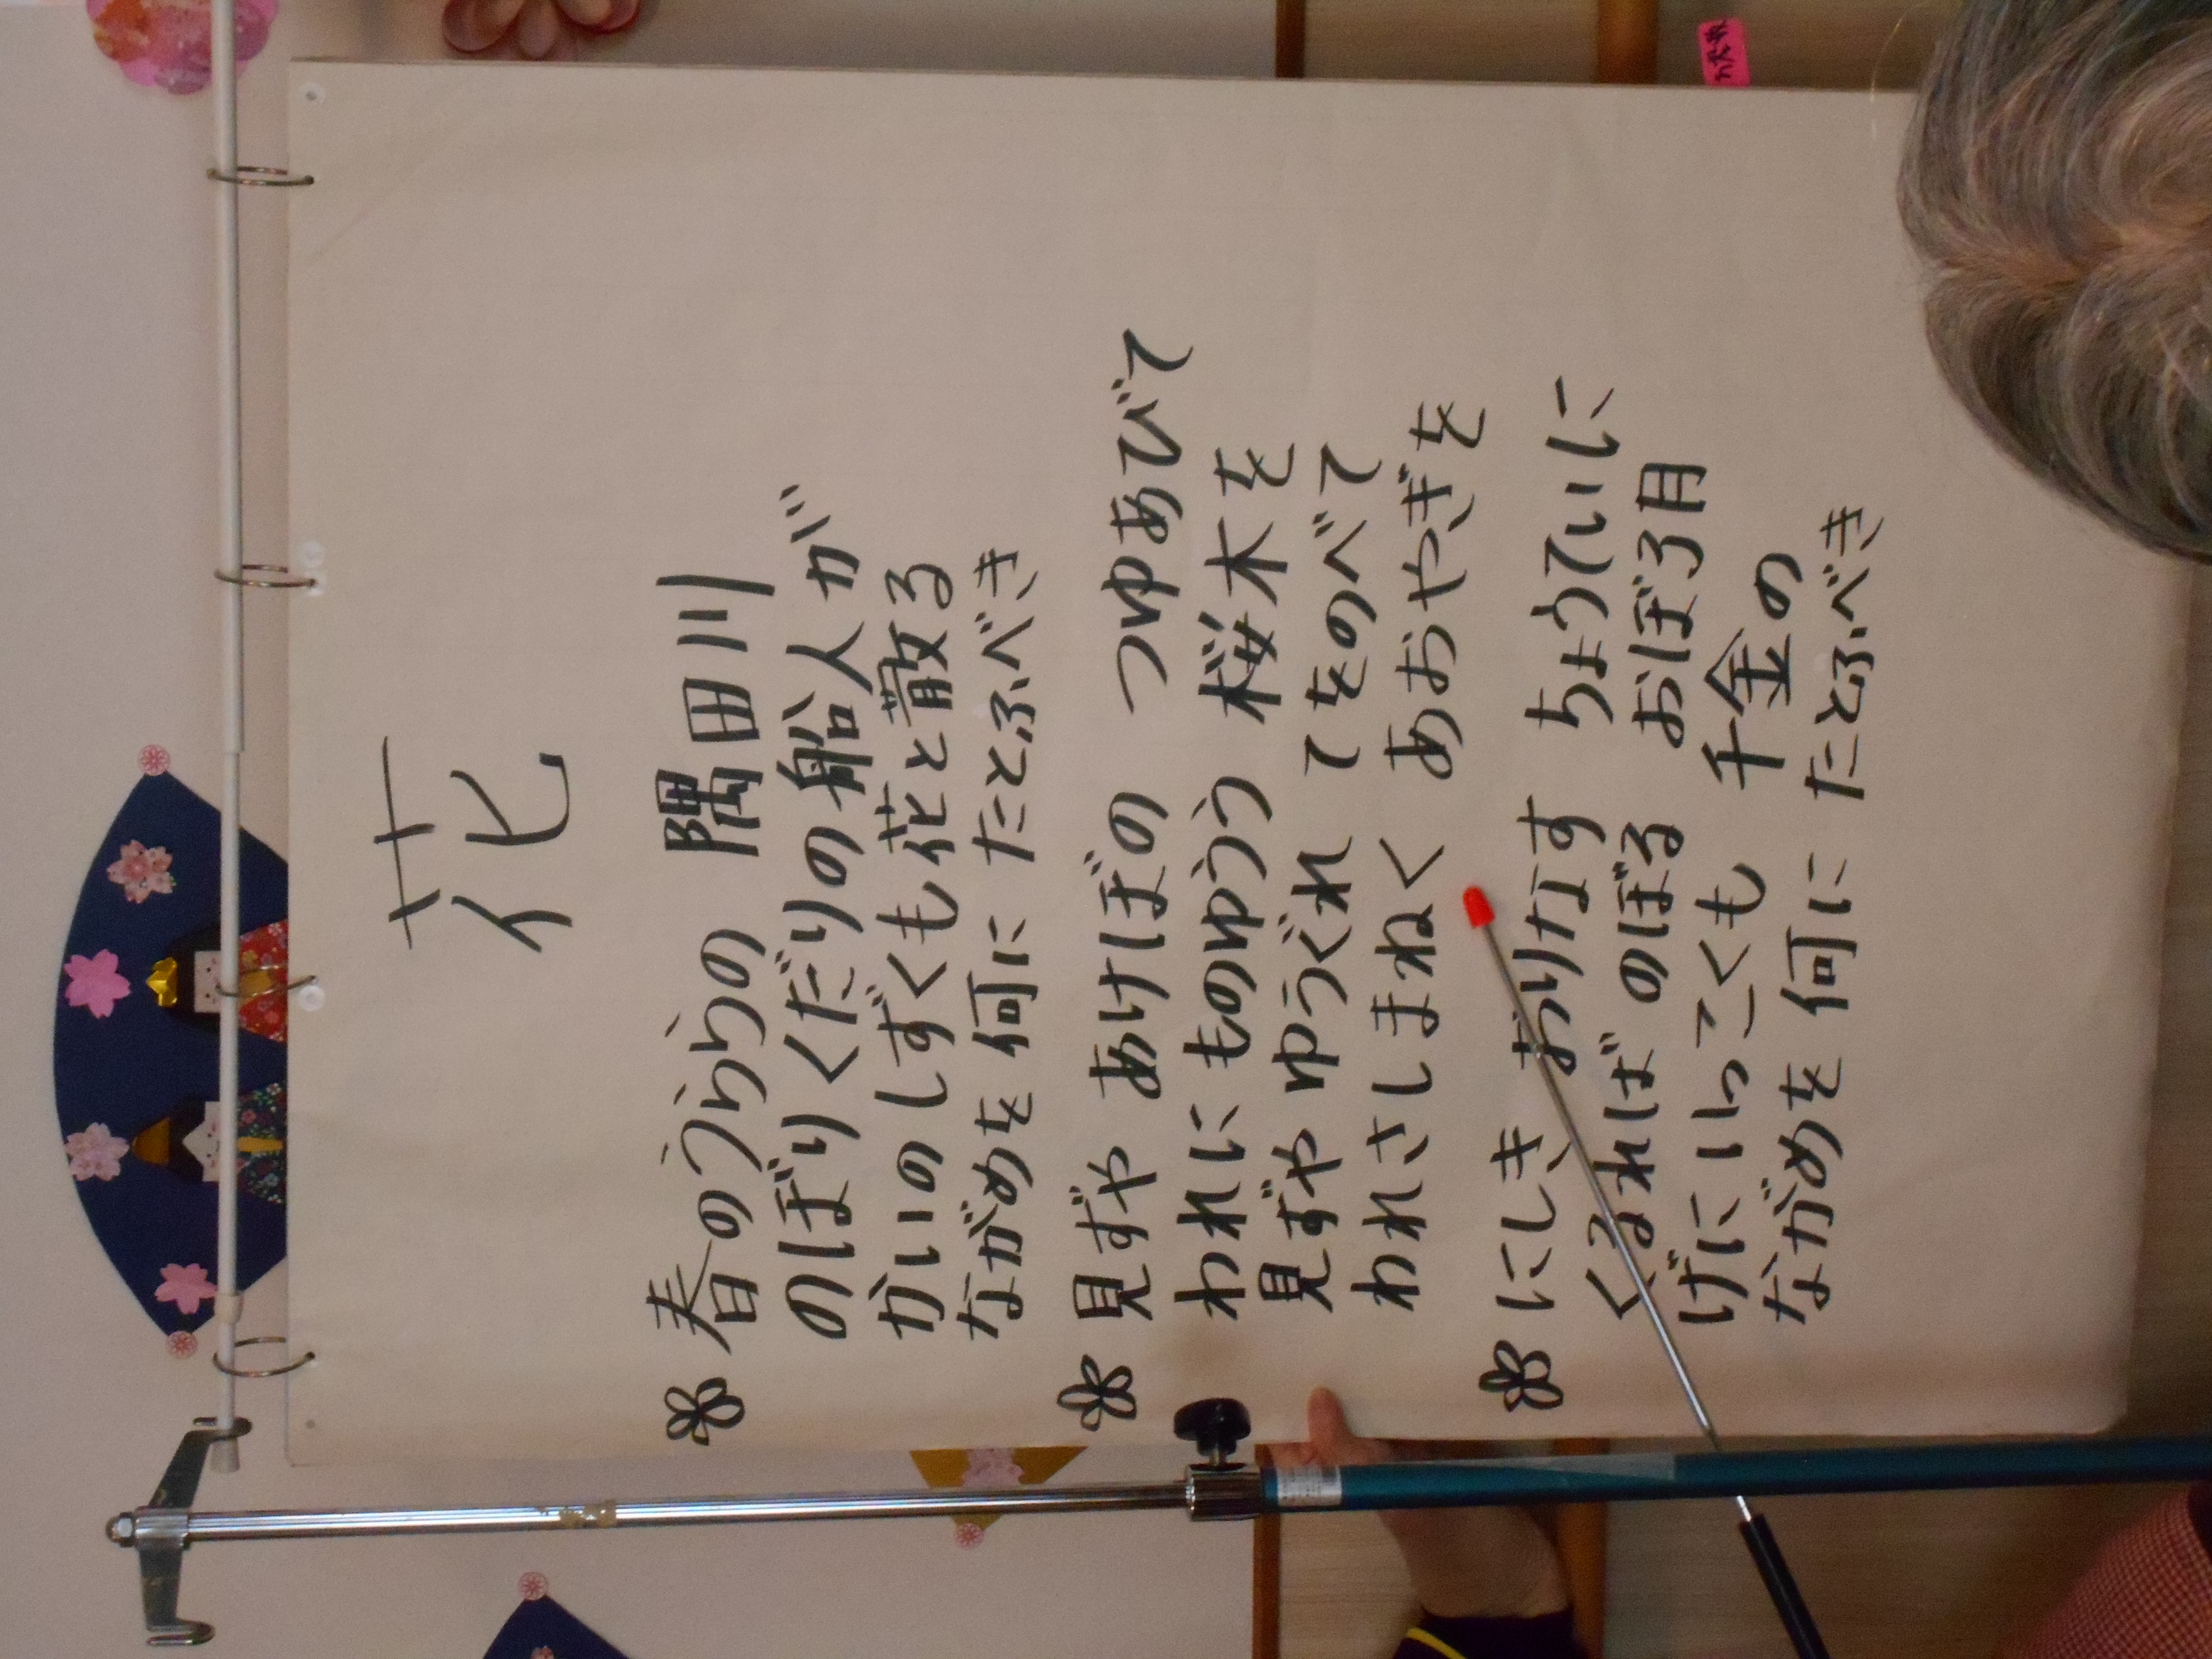 花
春のうららの 隅田川
のぼりくだりの船人が
かいのしずくも花と散る
ながめを何に たとふべき
見ずや あけぼの つゆあびて
われに ものゆうう 桜木を
見ずや ゆうぐれ てをのべて
われさしまねく あおやぎを
にしき おりなす ちょうていに
くるれば のぼる おぼろ月
げに いっこくも 千金の
ながめを 何に たとふべき